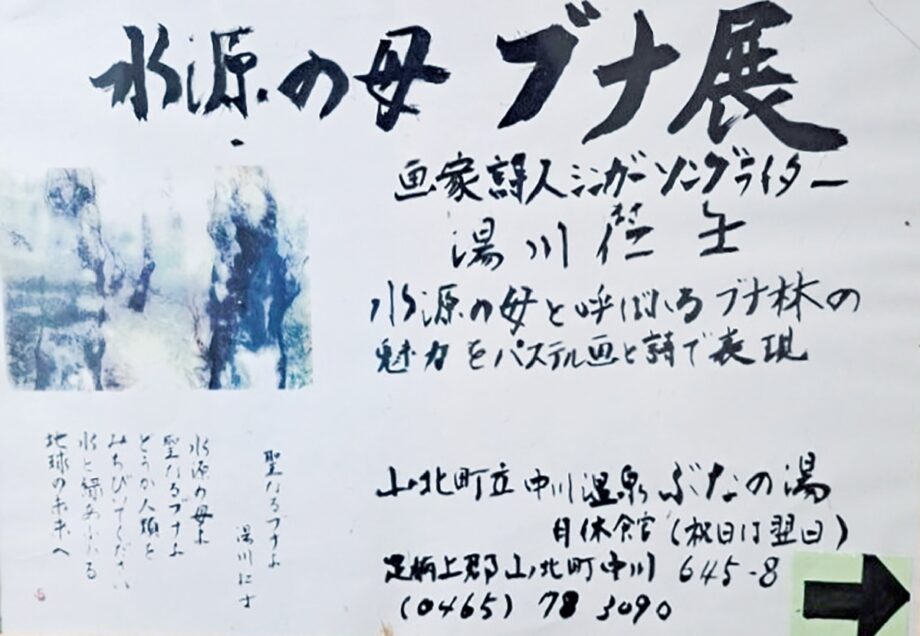 水源の母 ブナ展
画家詩人シンガーソングライター
湯川仁士
水源の母と呼ばれるブナ林の
魅力をパステル画と詩で表現
聖なるブナよ
湯川仁士
水源の母よ
聖なるブナよ
どうか人類を
みちびいてください
水と緑あふれる
地球の未来へ
山北町立中川温泉ぶなの湯
月休館(祝日は翌日)
足柄上郡山北町中川 645-8
(0465) 78 3090